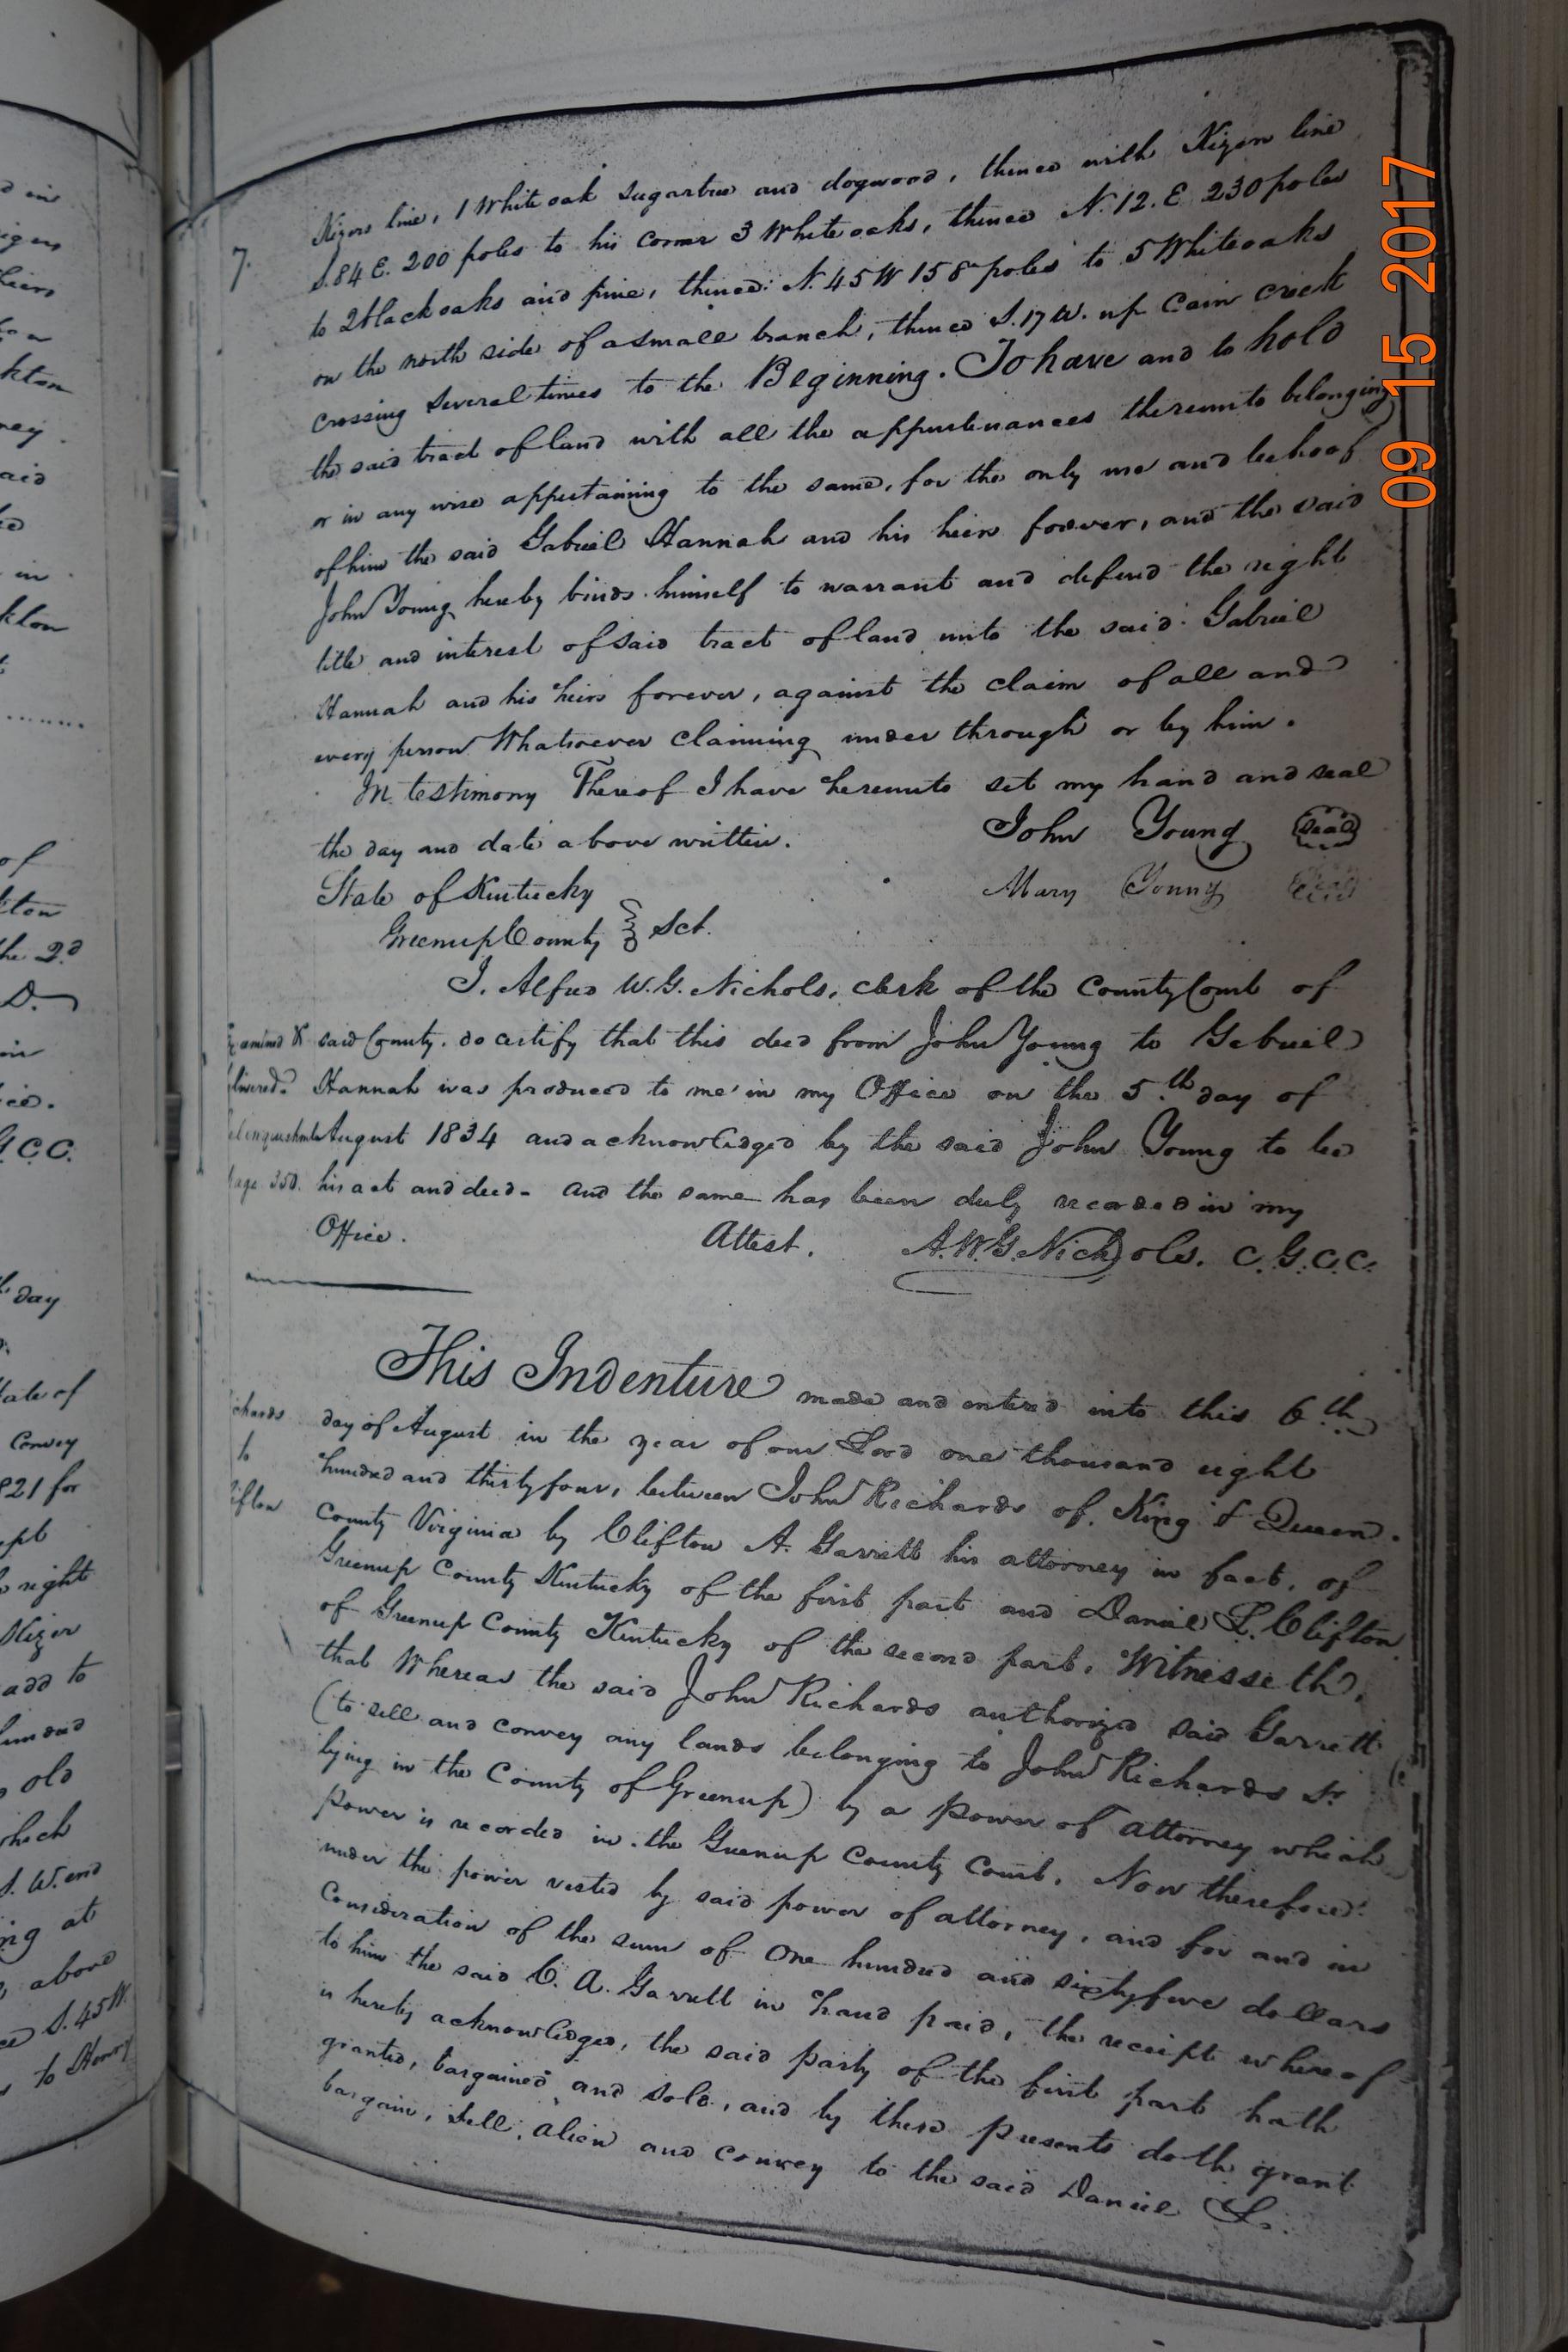 in
heirs
kton
ney.
said
in
klon
of
kton
the 2d
D.
in
ice.
G.C.C.
day
State of
Convey
1821 for
right
Kizer
add to
hundred
old
which
S. W. end
ing at
above
S. 45 W.
to Henry
7.
Kizers line, 1 White oak sugartree and dogwood, thence with Kizers line
S. 84 E. 200 poles to his corner 3 White oaks, thence N. 12. E 230 poles
to 2 black oaks and pine, thence N. 45 W 158 poles to 5 White oaks
on the north side of a small branch, thence S. 17 W. up Cain creek
crossing several times to the Beginning. To have and to hold
the said tract of land with all the appurtenances thereunto belonging
or in any wise appertaining to the same, for the only use and behoof
of him the said Gabriel Hannah and his heirs forever, and the said
John Young hereby binds himself to warrant and defend the right
title and interest of said tract of land unto the said Gabriel
Hannah and his heirs forever, against the claim of all and
every person Whatsoever claiming under through or by him.
In testimony Thereof I have hereunto set my hand and seal
the day and date above written. John Young Seal
State of Kentucky Mary Young Seal
Greenup County } Sct.
I. Alfred W. G. Nichols, clerk of the County Court of
Examined & said County. do certify that this deed from John Young to Gabriel
delivered. Hannah was produced to me in my Office on the 5.th day of
Relinquishment August 1834 and acknowledged by the said John Young to be
page 350. his act and deed - and the same has been duly recorded in my
Office. Attest. A. W. G. Nichols. C. G. C. C.
This Indenture made and entered into this 6th
Richards day of August in the year of our Lord one thousand eight
to hundred and thirty four, between John Richards of King & Queen
Clifton County Virginia by Clifton A. Garrett his attorney in fact, of
Greenup County Kentucky of the first part and Daniel L. Clifton
of Greenup County Kentucky of the second part, Witnesseth,
that Whereas the said John Richards authorized said Garrett
(to sell and convey any lands belonging to John Richards Sr
lying in the County of Greenup) by a power of attorney which
power is recorded in the Greenup County Court. Now therefore
under the power vested by said power of attorney, and for and in
Consideration of the sum of One hundred and sixty five dollars
to him the said C. A. Garrett in hand paid, the receipt whereof
is hereby acknowledged, the said party of the first part hath
granted, bargained and sold, and by these presents doth grant
bargain, sell, alien and convey to the said Daniel L.
09 15 2017